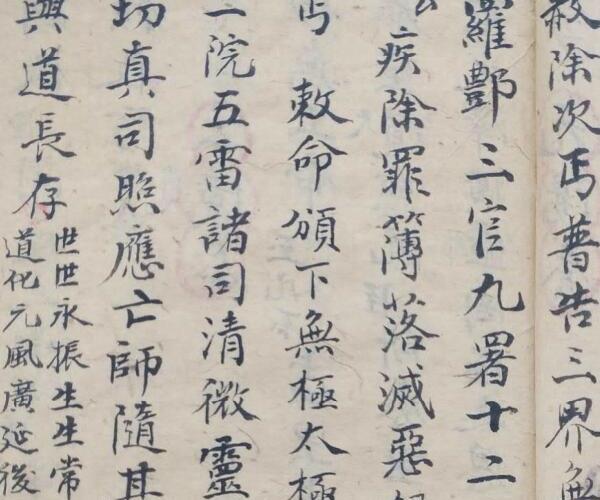 赦除次丐普告三界無
羅酆三官九署十二
疾除罪簿落滅惡
丐敕命頒下無極太極
二院五雷諸司清微靈
切真司照應亡師隨其
興道長存
世世永振生生常
道化元風廣延後